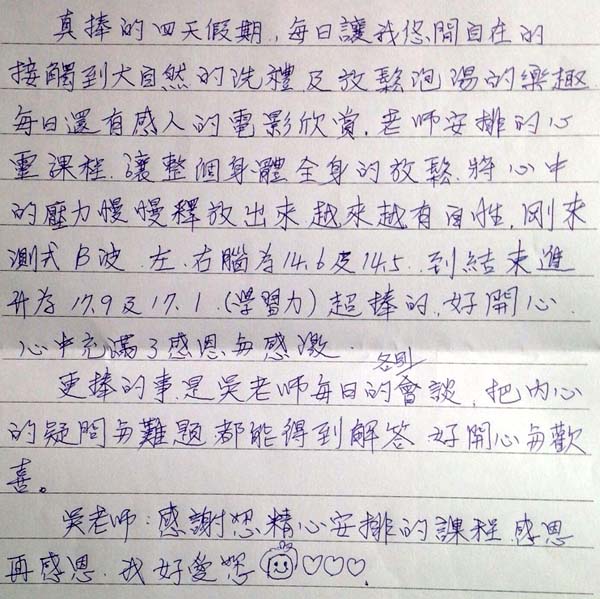 真棒的四天假期,每日讓我悠閒自在的
接觸到大自然的洗禮及放鬆泡湯的樂趣
每日還有感人的電影欣賞,老師安排的心
靈課程,讓整個身體全身的放鬆,將心中
的壓力慢慢釋放出來,越來越有自性,剛來
測式β波 左.右腦為14.6及14.5 到結束進
升為17.9及17.1.(學習力)超棒的,好開心.
心中充滿了感恩與感激.
更棒的事是吳老師每日的各別會談,把內心
的疑問與難題都能得到解答 好開心與歡
喜。
吳老師:感謝您精心安排的課程 感恩
再感恩.我好愛您 ♡♡♡.